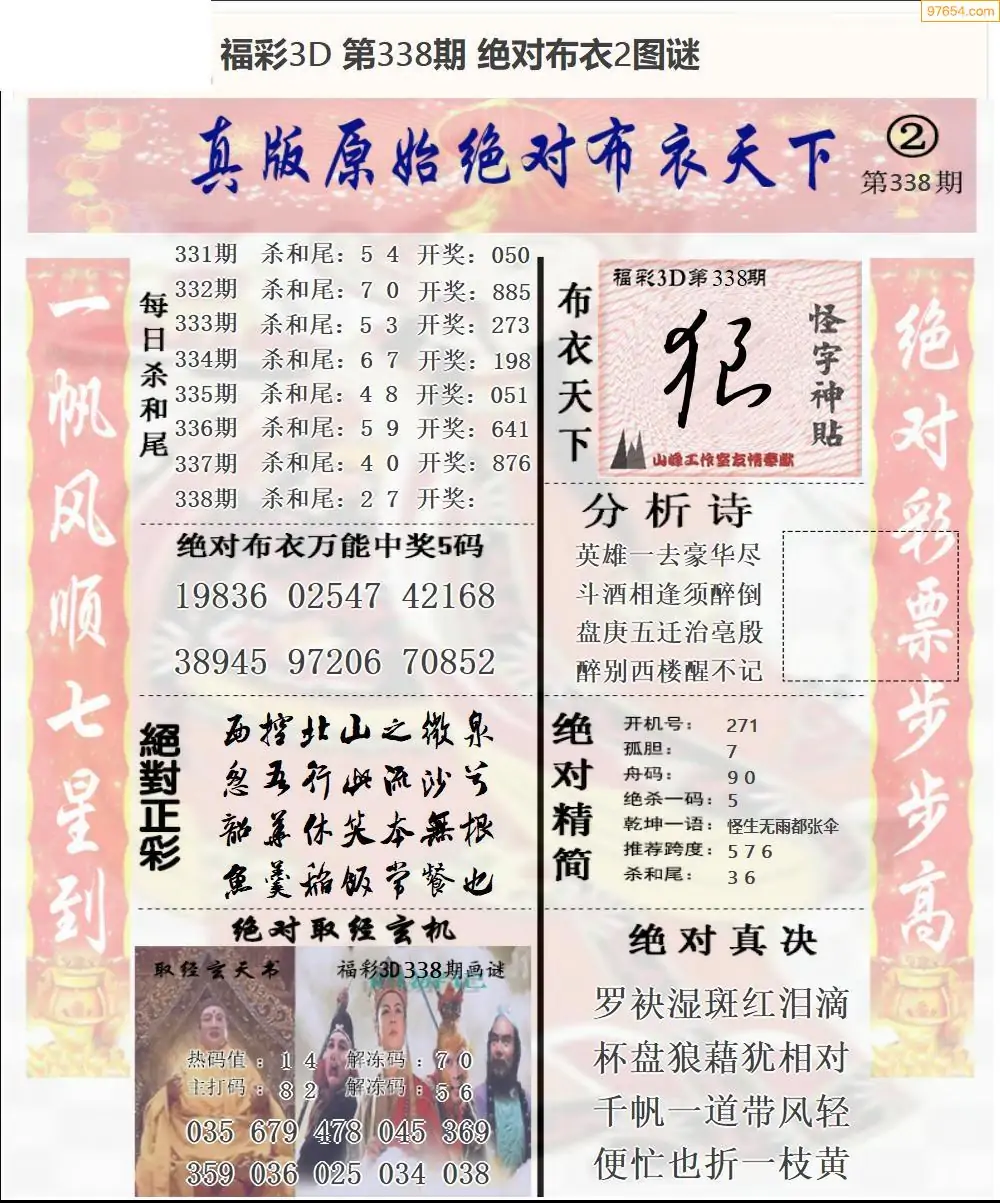 97654.com
福彩3D 第338期 绝对布衣2图谜
真版原始绝对布衣天下
②
第338期
一帆风顺七星到
每日杀和尾
331期 杀和尾：5 4 开奖：050
332期 杀和尾：7 0 开奖：885
333期 杀和尾：5 3 开奖：273
334期 杀和尾：6 7 开奖：198
335期 杀和尾：4 8 开奖：051
336期 杀和尾：5 9 开奖：641
337期 杀和尾：4 0 开奖：876
338期 杀和尾：2 7 开奖：
绝对布衣万能中奖5码
19836 02547 42168
38945 97206 70852
絕對正彩
西控北山之微泉
忽吾行此流沙兮
韶華休笑本無根
魚羹稻飯常餐也
绝对取经玄机
取经玄天书
福彩3D338期画谜
热码值：1 4 解冻码：7 0
主打码：8 2 解冻码：5 6
035 679 478 045 369
359 036 025 034 038
布衣天下
福彩3D第338期
狠
怪字神貼
山峰工作室友情奉献
分析诗
英雄一去豪华尽
斗酒相逢须醉倒
盘庚五迁治亳殷
醉别西楼醒不记
绝对精简
开机号： 271
孤胆： 7
舟码： 9 0
绝杀一码：5
乾坤一语：怪生无雨都张伞
推荐跨度：5 7 6
杀和尾： 3 6
绝对真决
罗袂湿斑红泪滴
杯盘狼藉犹相对
千帆一道带风轻
便忙也折一枝黄
绝对彩票步步高